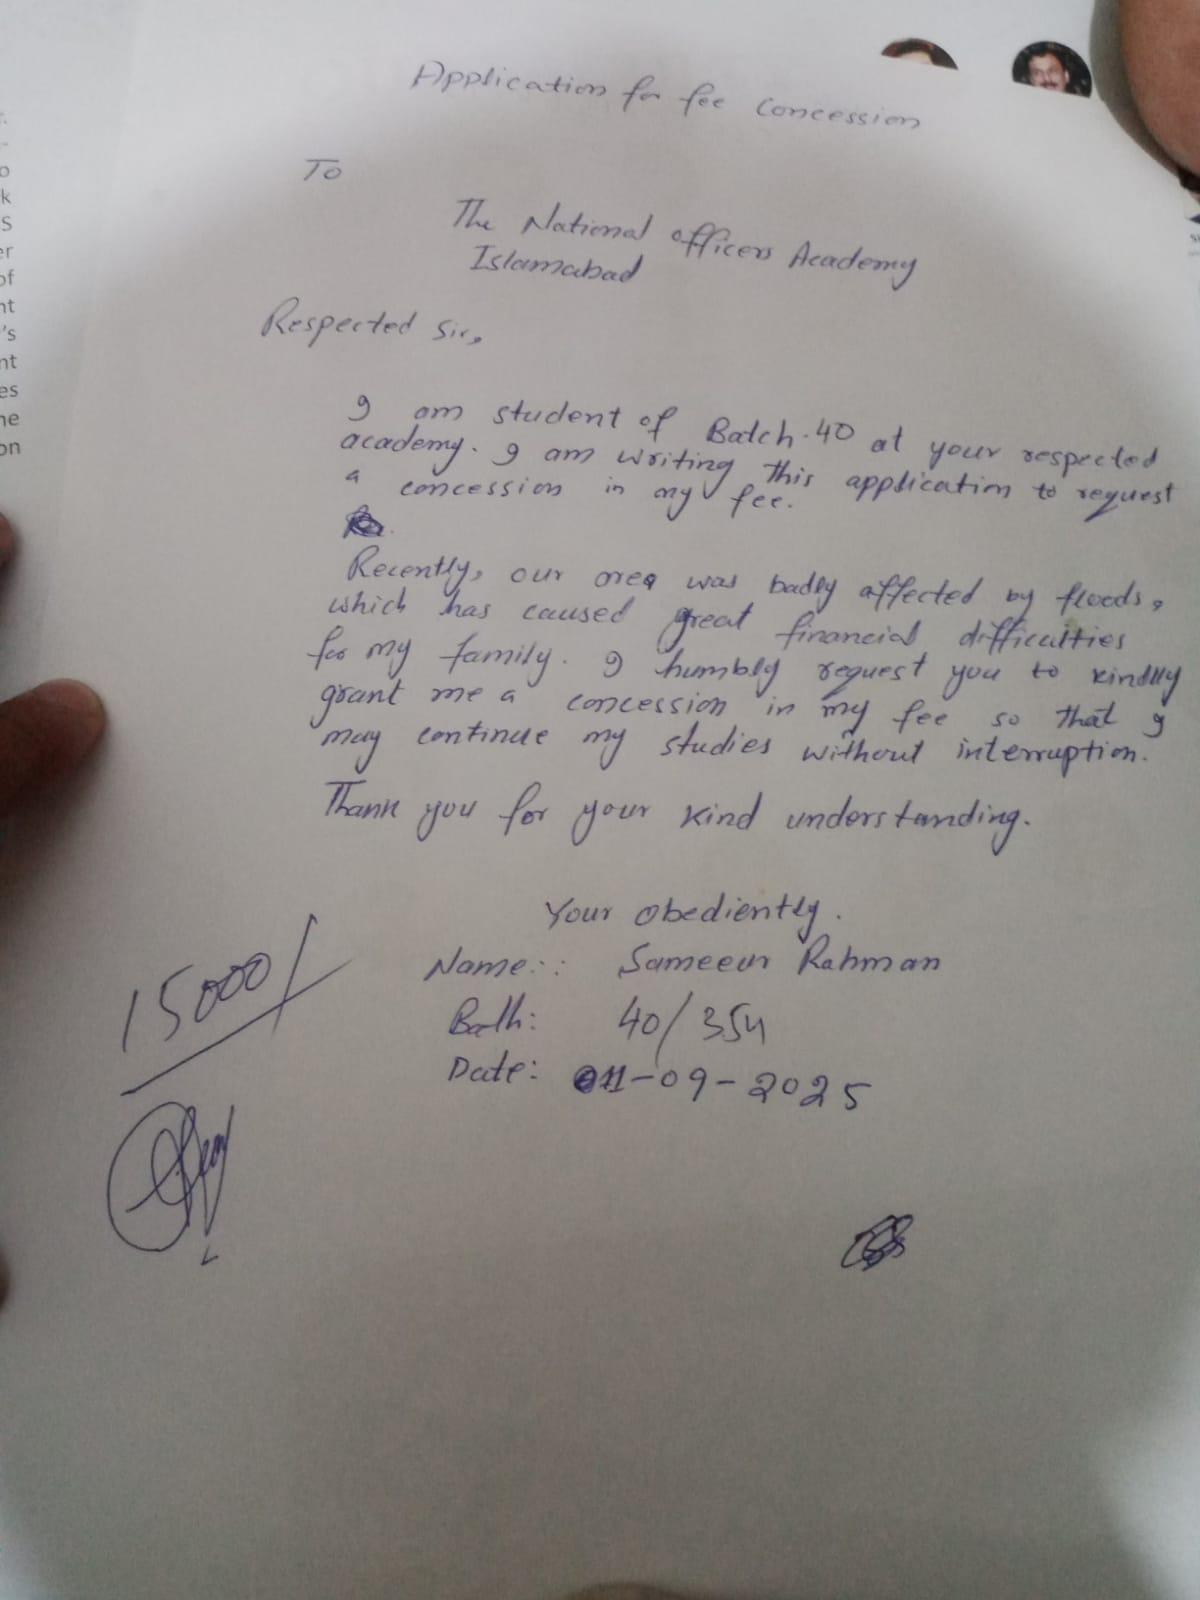 Application for fee Concession
To
The National officers Academy
Islamabad
Respected Sir,
I am student of Batch-40 at your respected
academy. I am writing this application to request
a concession in my fee.
Recently, our area was badly affected by floods,
which has caused great financial difficulties
for my family. I humbly request you to kindly
grant me a concession in my fee so that I
may continue my studies without interruption.
Thank you for your kind understanding.
Your obediently.
Name:: Sameeur Rahman
40/354
Date: 01-09-2025
15000/
r.
-
o
k
S
er
of
nt
's
nt
es
ne
on